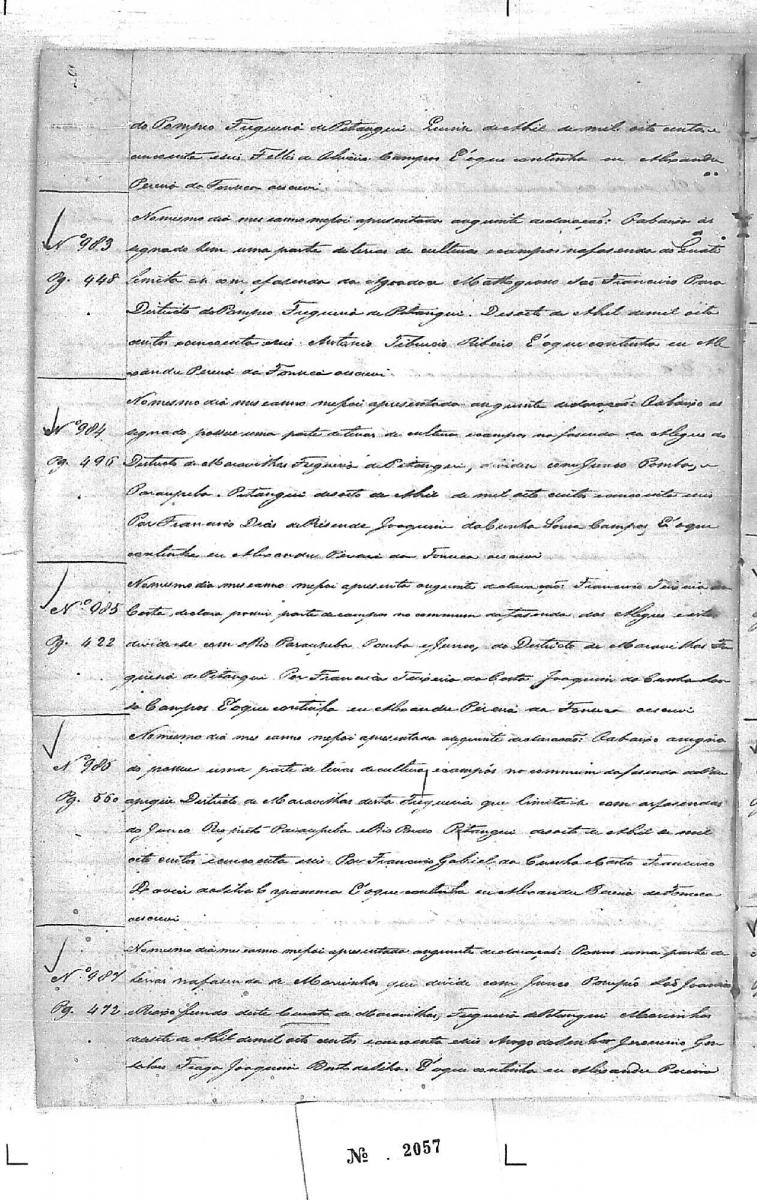 do Pompeo Freguesia de Pitangui Quinze de Abril de mil oito centos e
cincoenta e seis Felles de Oliveira Campos E o que continha eu Alexandre
Pereira da Fonseca escrevi
No mesmo dia mes e anno me foi apresentada a seguinte declaração: O abaixo as
signado tem uma parte de terras de culturas e campos na fasenda do
Nº 983
limita se com a fasenda da Mattogrosso São Francisco Para
Pg. 448
Districto do Pompeo Freguesia de Pitangui. Desoito de Abril de mil oito
centos e cincoenta e seis Antonio Tiburcio Ribeiro E o que continha eu Ale
xandre Pereira da Fonseca escrevi.
No mesmo dia mes e anno me foi apresentada a seguinte declaração: O abaixo as
Nº 984
signado possue uma parte de terras de cultura e campos na fasenda da do
Pg. 496
Districto de Maravilhas Freguesia de Pitangui, divide com Junco Pomba, e
Paraupeba. Pitangui desoito de Abril de mil oito centos e cincoenta e seis
Por Francisco Dias de Resende Joaquim da Cunha Sousa Campos, E o que
continha eu Alexandre Pereira da Fonseca escrevi
No mesmo dia mes e anno me foi apresenta a seguinte declaração: Francisco Teixeira da
Nº 985
Costa declara possuir parte de campos no commum da fasenda das e esta
Pg. 422
divide se com Rio Paraupeba Pomba e Junco, do Districto de Maravilhas Fre
guesia de Pitangui Por Francisco Teixeira da Costa Joaquim da Cunha Sou
sa Campos E o que continha eu Alexandre Pereira da Fonseca escrevi
No mesmo dia mes e anno me foi apresentada a seguinte declaração: O abaixo assigna
Nº 986
do possue uma parte de terras de cultura e campos no commum da fasenda
Pg. 550
Districto de Maravilhas desta Freguesia que limita se com as fasendas
do Junco Paraupeba e Rio Pardo Pitangui desoito de Abril de mil
oito centos e cincoenta e seis Por Francisco Gabriel da Cunha Francisco
Xavier da Silva Capanema E o que continha eu Alexandre Pereira da Fonseca
escrevi
No mesmo dia mes e anno me foi apresentada a seguinte declaração: Possue uma parte de
Nº 987
terras na fasenda de que divide com Junco Pompéo São Joanico
Pg. 472
e deste Curato de Maravilhas, Freguesia de Pitangui
desete de Abril de mil oito centos e cincoenta e seis A rogo do Senhor Jeronimo Gon
salves Joaquim da Silva. E o que continha eu Alexandre Pereira
Nº. 2057